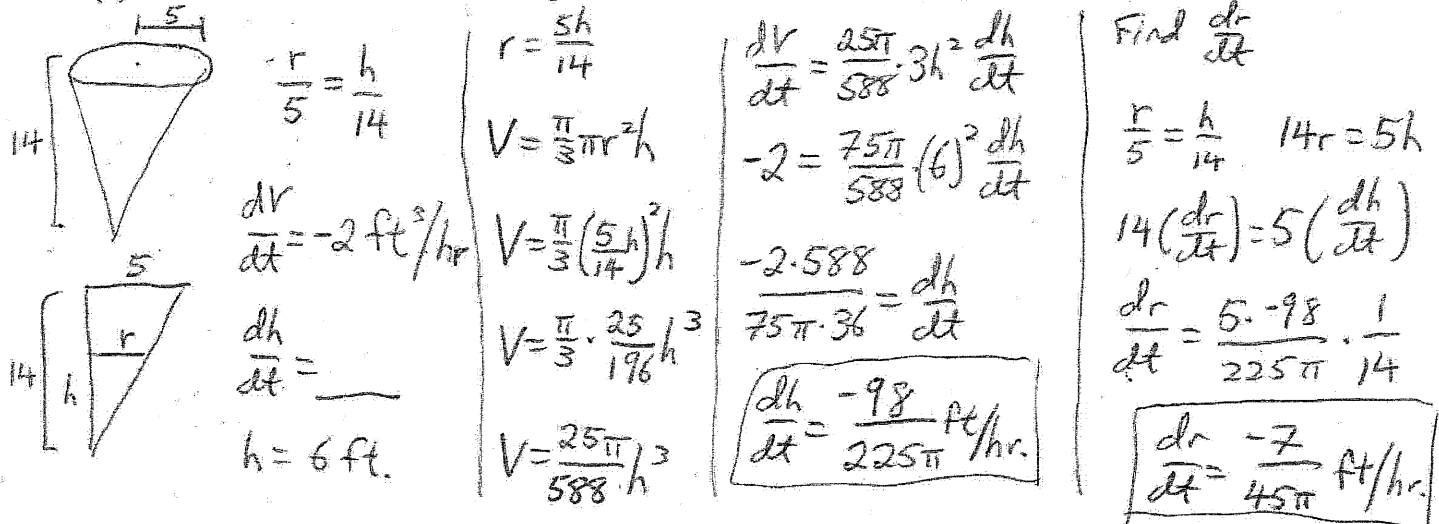 5
14
5
14
r
h
r/5 = h/14
dV/dt = -2 ft³/hr
dh/dt = ___
h = 6 ft.
r = 5h/14
V = π/3 πr²h
V = π/3 (5/14 h)² h
V = π/3 · 25/196 h³
V = 25π/588 · h³
dV/dt = 25π/588 · 3h² dh/dt
-2 = 75π/588 · (6)² dh/dt
-2·588/75π·36 = dh/dt
dh/dt = -98/225π ft/hr.
Find dr/dt
r/5 = h/14 14r = 5h
14(dr/dt) = 5(dh/dt)
dr/dt = 5·-98/225π · 1/14
dr/dt = -7/45π ft/hr.